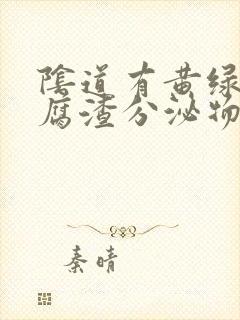 陰道有黄绿
腐渣分泌物
秦晴